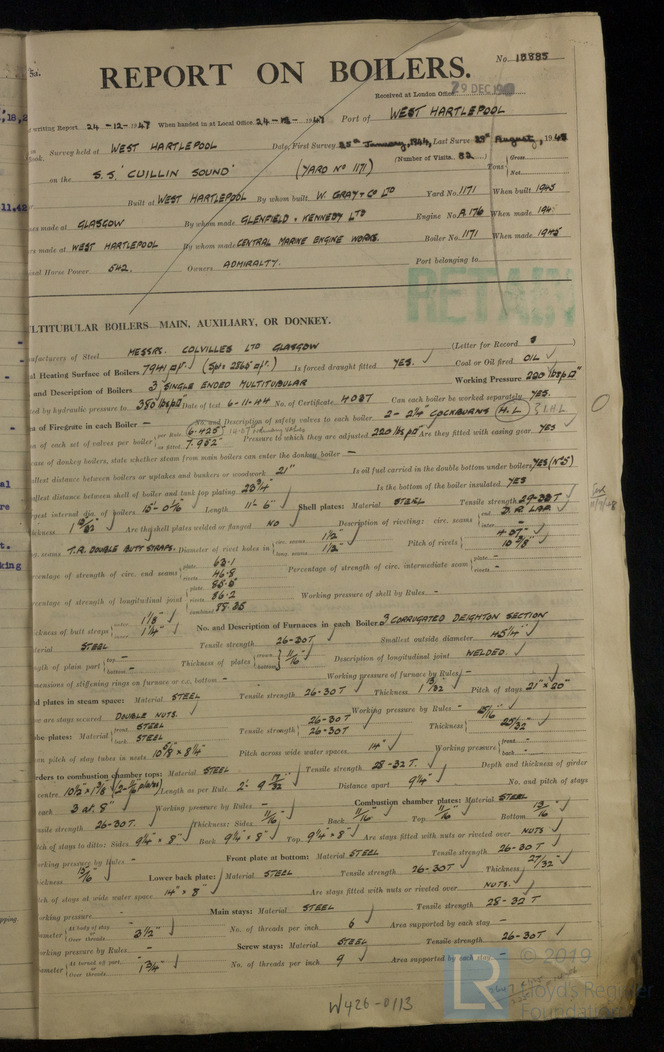 5a.
No. 15885
REPORT ON BOILERS.
Received at London Office 29 DEC 19
writing Report 24-12-1947 When handed in at Local Office 24-12-1947 Port of WEST HARTLEPOOL
Survey held at WEST HARTLEPOOL Date, First Survey 25th January, 1944, Last Survey August, 1945
on the S.S. 'CUILLIN SOUND' (YARD No 1171) (Number of Visits 82) Tons Gross Net
Built at WEST HARTLEPOOL By whom built W. GRAY & CO LTD Yard No. 1171 When built 1945
es made at GLASGOW By whom made GLENFIELD & KENNEDY LTD Engine No. A.176 When made 194
rs made at WEST HARTLEPOOL By whom made CENTRAL MARINE ENGINE WORKS. Boiler No. 1171 When made 1945
nal Horse Power 542. Owners ADMIRALTY. Port belonging to
RETAIN
ULTITUBULAR BOILERS MAIN, AUXILIARY, OR DONKEY.
nufacturers of Steel MESSRS. COLVILLES LTD GLASGOW (Letter for Record S)
al Heating Surface of Boilers 7941 Is forced draught fitted YES. Coal or Oil fired OIL
and Description of Boilers 3 SINGLE ENDED MULTITUBULAR Working Pressure 220 lbs p
ted by hydraulic pressure to 380 lbs p Date of test 6-11-44 No. of Certificate 4087 Can each boiler be worked separately YES.
ea of Firegrate in each Boiler — No. and Description of safety valves to each boiler 2 - 2¼" COCKBURNS H.L
ea of each set of valves per boiler per Rule 6.425 as fitted 7.952 Pressure to which they are adjusted 220 lbs p Are they fitted with easing gear YES
case of donkey boilers, state whether steam from main boilers can enter the donkey boiler —
allest distance between boilers or uptakes and bunkers or woodwork 21" Is oil fuel carried in the double bottom under boilers YES (No 5)
allest distance between shell of boiler and tank top plating 23¾" Is the bottom of the boiler insulated YES
gest internal dia. of boilers 15'-0 Length 11'-6" Shell plates: Material STEEL Tensile strength 29-33T
ickness Are the shell plates welded or flanged NO Description of riveting: circ. seams end D.R. LAP. inter. —
ng. seams T.R. DOUBLE BUTT STRAPS. Diameter of rivet holes in circ. seams 1½" long. seams 1½" Pitch of rivets
ercentage of strength of circ. end seams plate 62.1 rivets 46.8 Percentage of strength of circ. intermediate seam plate — rivets —
ercentage of strength of longitudinal joint plate 85.5 rivets 86.2 combined 88.35 Working pressure of shell by Rules —
ickness of butt straps outer 1⅛" inner 1¼" No. and Description of Furnaces in each Boiler 3 CORRUGATED DEIGHTON SECTION
terial STEEL Tensile strength 26-30T Smallest outside diameter 45¼"
ngth of plain part top — bottom — Thickness of plates crown bottom 11/16" Description of longitudinal joint WELDED.
mensions of stiffening rings on furnace or c.c. bottom — Working pressure of furnace by Rules —
nd plates in steam space: Material STEEL Tensile strength 26-30T Thickness 1 Pitch of stays 21" x 20"
ow are stays secured DOUBLE NUTS. Working pressure by Rules —
ube plates: Material front STEEL back STEEL Tensile strength 26-30T 26-30T Thickness 25/32"
ean pitch of stay tubes in nests 10⅝" x 8¼" Pitch across wide water spaces 14" Working pressure front — back —
rders to combustion chamber tops: Material STEEL Tensile strength 28-32T. Depth and thickness of girder
centre 10½" x 1⅜ Length as per Rule 2' 9 Distance apart 9¼" No. and pitch of stays
each 3 AT 8" Working pressure by Rules — Combustion chamber plates: Material STEEL
nsile strength 26-30T. Thickness: Sides 11/16" Back 11/16" Top 11/16" Bottom 13/16"
tch of stays to ditto: Sides 9¼" x 8" Back 9¼" x 8" Top 9¼" x 8" Are stays fitted with nuts or riveted over NUTS
orking pressure by Rules — Front plate at bottom: Material STEEL Tensile strength 26-30T
ickness 15/16 Lower back plate: Material STEEL Tensile strength 26-30T Thickness 27/32"
tch of stays at wide water space 14" x 8" Are stays fitted with nuts or riveted over NUTS.
orking pressure — Main stays: Material STEEL Tensile strength 28-32T
ameter At body of stay or Over threads 3½" No. of threads per inch 6 Area supported by each stay —
orking pressure by Rules — Screw stays: Material STEEL Tensile strength 26-30T
ameter At turned off part, or Over threads 1¾" No. of threads per inch 9 Area supported by each stay —
W426-0113
© 2019
Lloyd's Register
Foundation